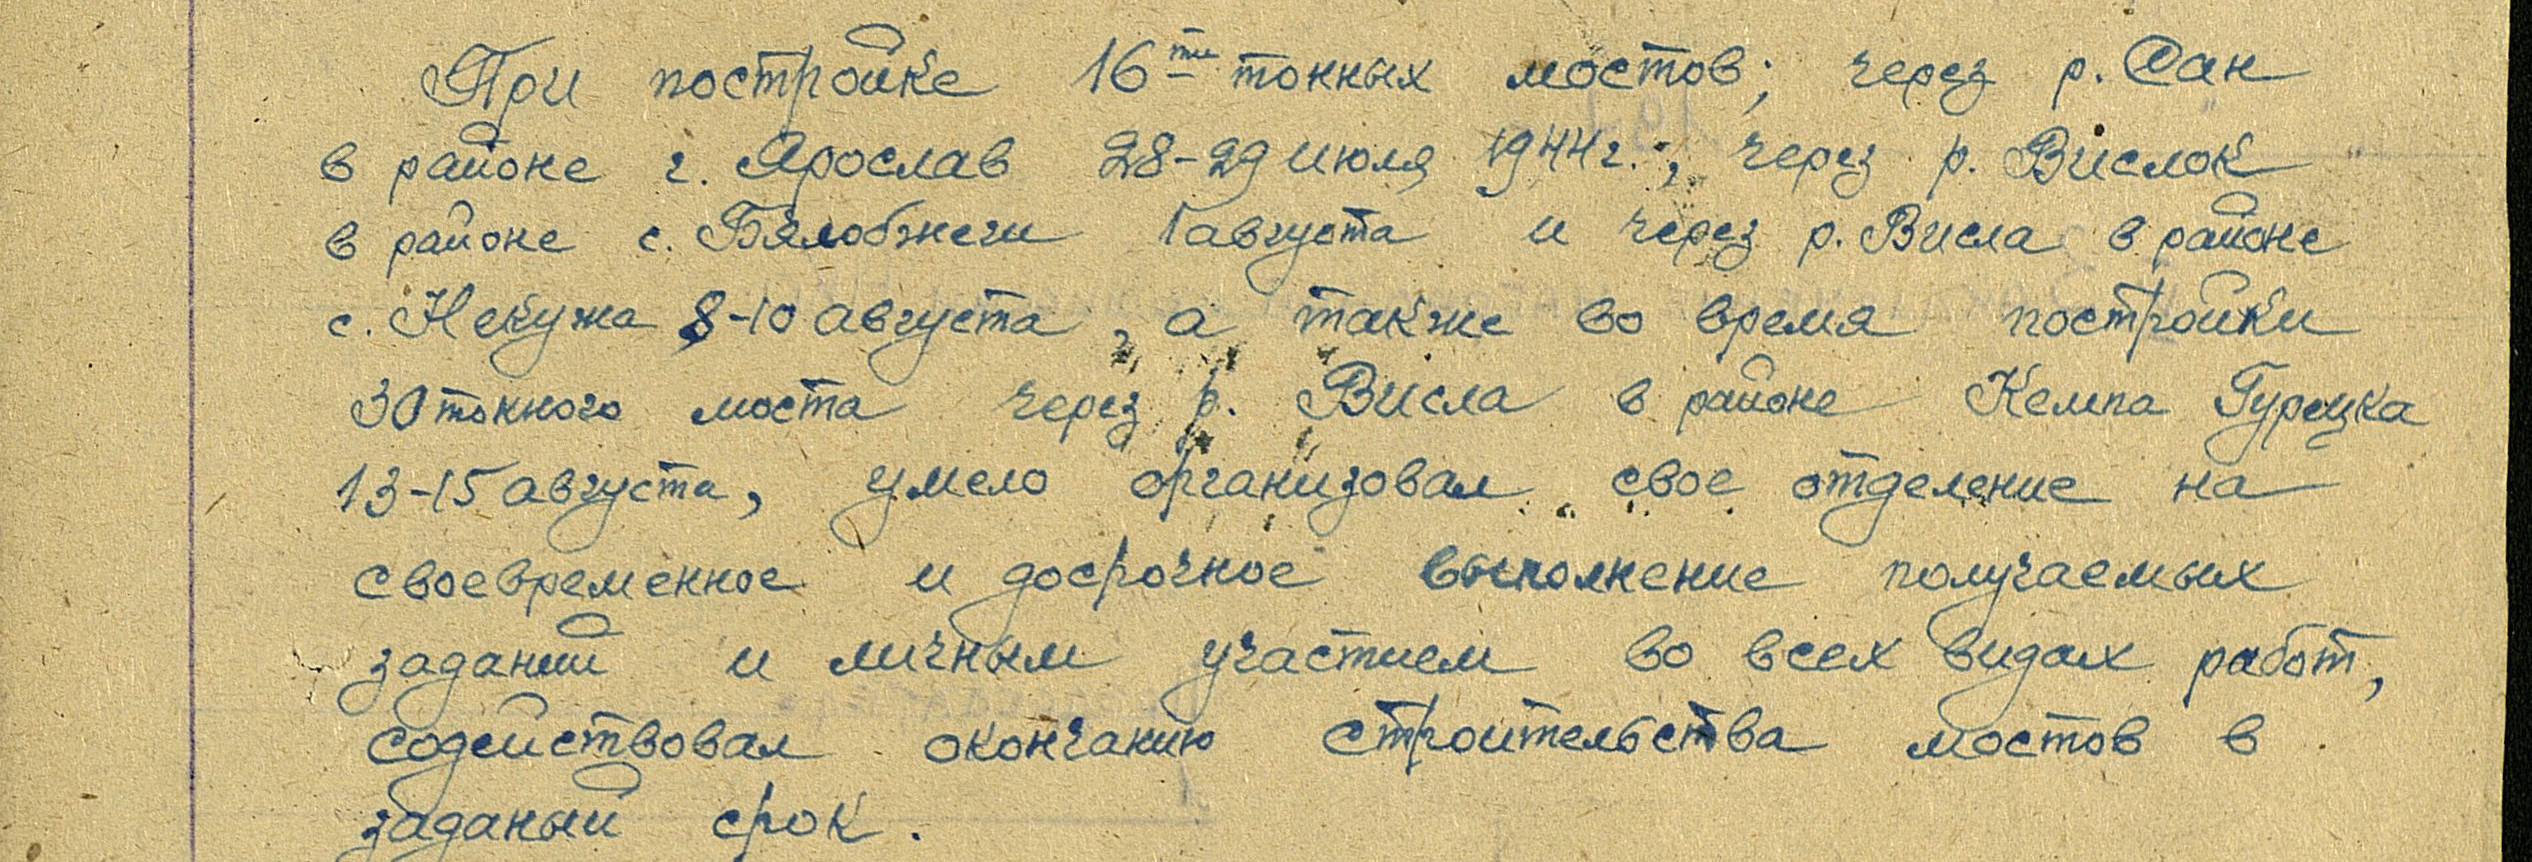 При постройке 16ти тонных мостов; через р. Сан
в районе г. Ярослав 28-29 июля 1944г.; через р. Вислок
в районе с. Бялобжеги 1 августа и через р. Висла в районе
с. Некужа 8-10 августа, а также во время постройки
30 тонного моста через р. Висла в районе Кемпа Гурецка
13-15 августа, умело организовал свое отделение на
своевременное и досрочное выполнение получаемых
заданий и личным участием во всех видах работ,
содействовал окончанию строительства мостов в
заданый срок.